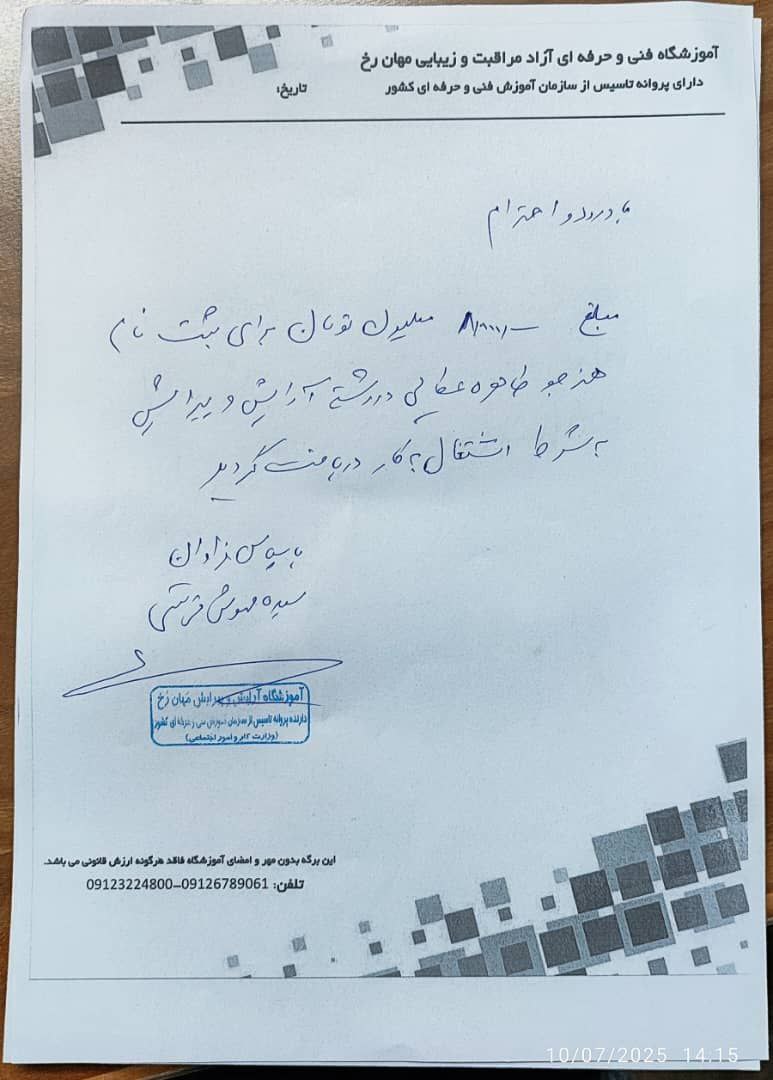 آموزشگاه فنی و حرفه ای آزاد مراقبت و زیبایی مهان رخ
دارای پروانه تاسیس از سازمان آموزش فنی و حرفه ای کشور
تاریخ:
با درود و احترام
مبلغ میلیون تومان برای ثبت نام
هنرجو طاهره عطایی در رشته آرایش و پیرایش
به شرط اشتغال به کار دریافت گردید
با سپاس فراوان
سیده مهوش قریشی
آموزشگاه آرایش و پیرایش مهان رُخ
دارنده پروانه تاسیس از سازمان آموزش فنی و حرفه ای کشور
(وزارت کار و امور اجتماعی)
این برگه بدون مهر و امضای آموزشگاه فاقد هرگونه ارزش قانونی می باشد.
تلفن: 09126789061-09123224800
10/07/2025 14.15